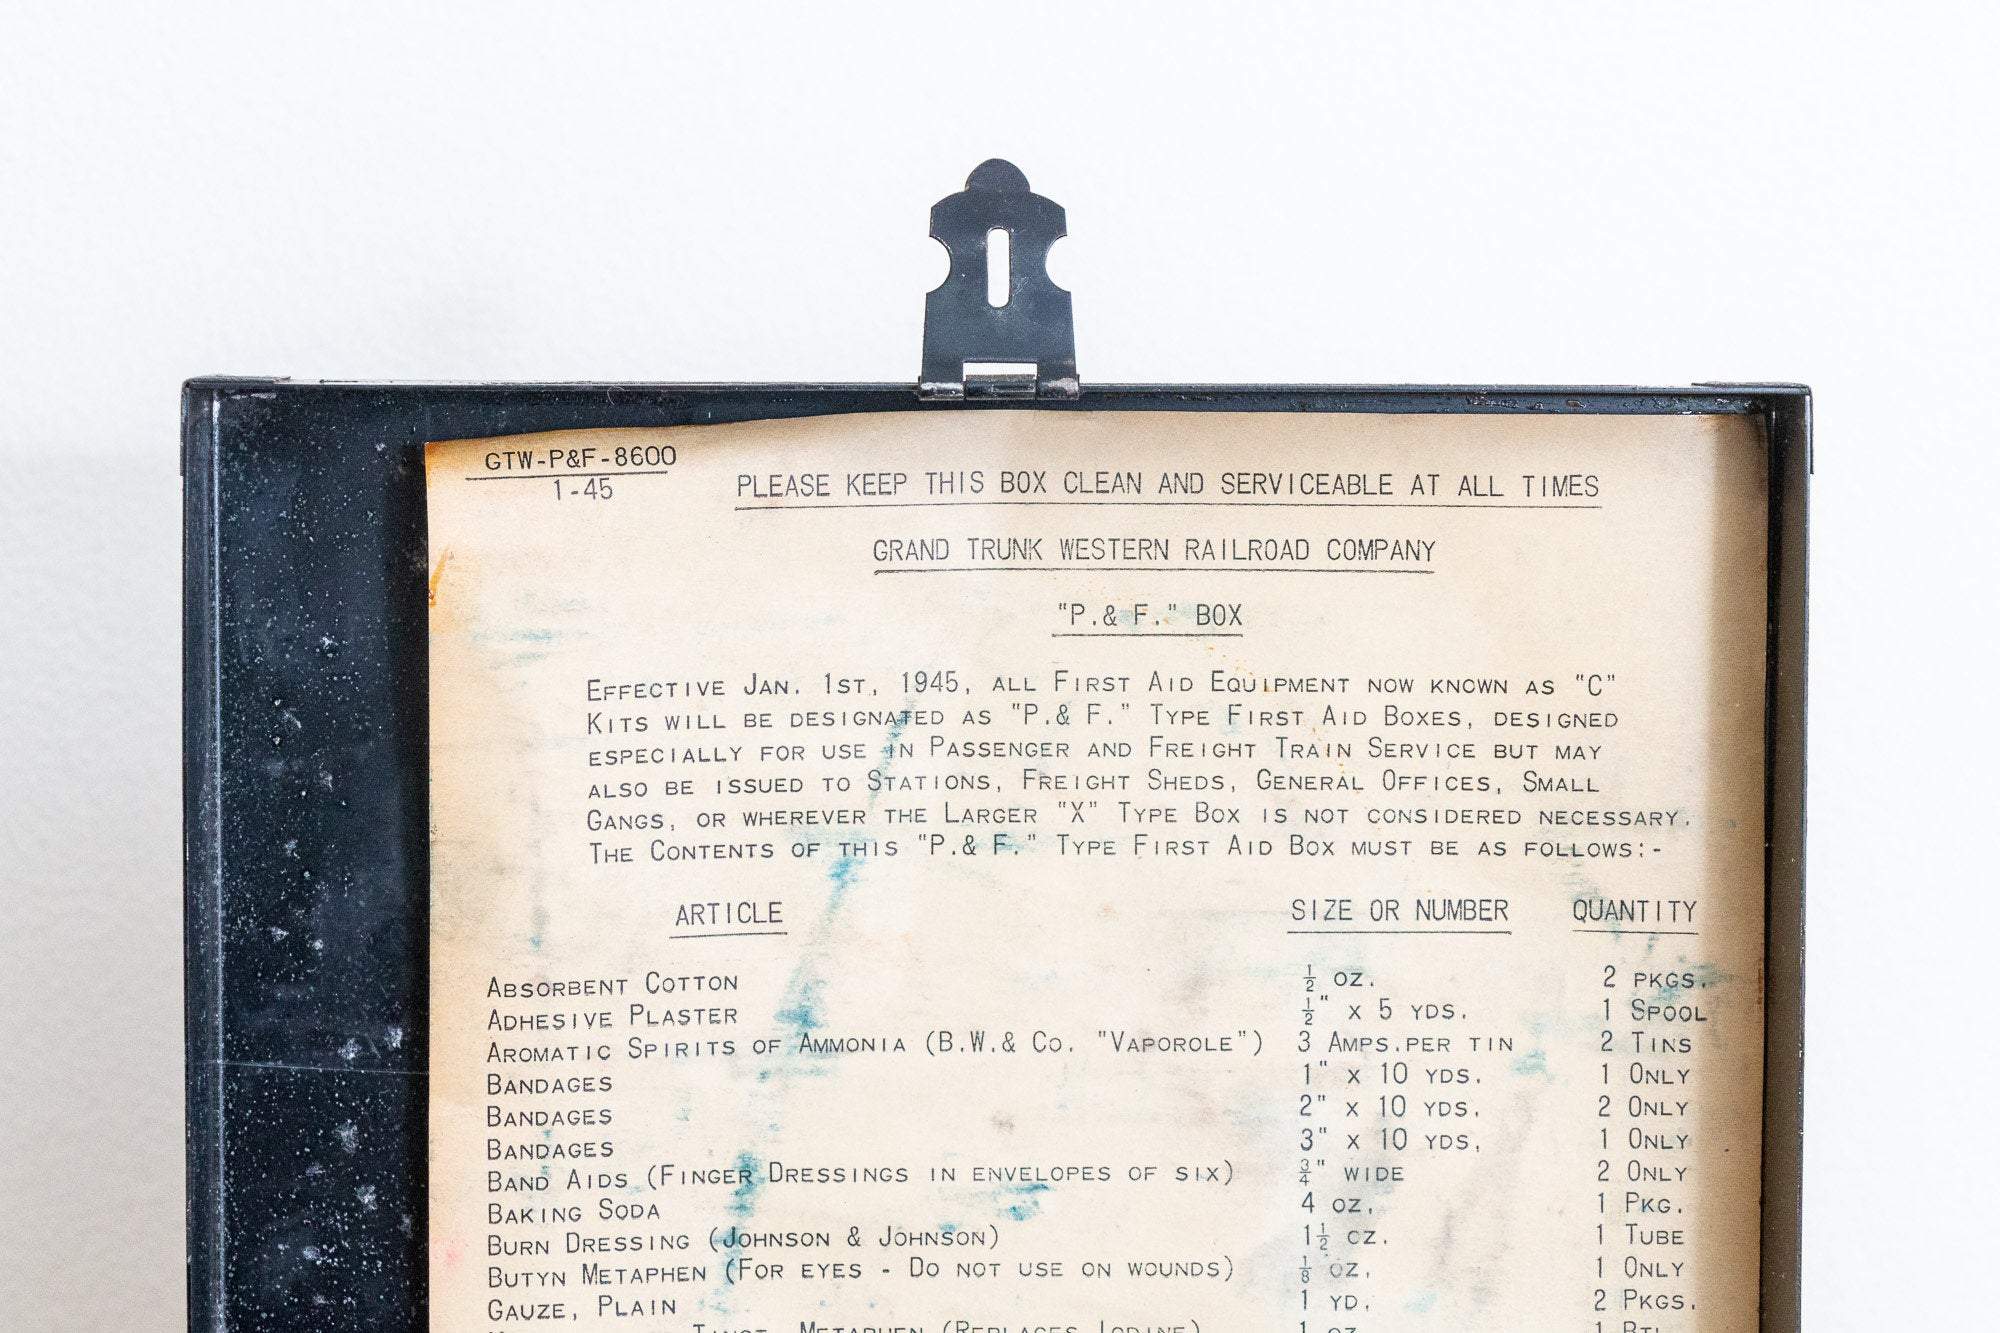 GTW-P&F-8600
1-45
PLEASE KEEP THIS BOX CLEAN AND SERVICEABLE AT ALL TIMES
GRAND TRUNK WESTERN RAILROAD COMPANY
"P.& F." BOX
EFFECTIVE JAN. 1ST, 1945, ALL FIRST AID EQUIPMENT NOW KNOWN AS "C"
KITS WILL BE DESIGNATED AS "P.& F." TYPE FIRST AID BOXES, DESIGNED
ESPECIALLY FOR USE IN PASSENGER AND FREIGHT TRAIN SERVICE BUT MAY
ALSO BE ISSUED TO STATIONS, FREIGHT SHEDS, GENERAL OFFICES, SMALL
GANGS, OR WHEREVER THE LARGER "X" TYPE BOX IS NOT CONSIDERED NECESSARY.
THE CONTENTS OF THIS "P.& F." TYPE FIRST AID BOX MUST BE AS FOLLOWS:-
ARTICLE SIZE OR NUMBER QUANTITY
ABSORBENT COTTON ½ OZ. 2 PKGS.
ADHESIVE PLASTER ½" X 5 YDS. 1 SPOOL
AROMATIC SPIRITS OF AMMONIA (B.W.& CO. "VAPOROLE") 3 AMPS.PER TIN 2 TINS
BANDAGES 1" X 10 YDS. 1 ONLY
BANDAGES 2" X 10 YDS. 2 ONLY
BANDAGES 3" X 10 YDS. 1 ONLY
BAND AIDS (FINGER DRESSINGS IN ENVELOPES OF SIX) ¾" WIDE 2 ONLY
BAKING SODA 4 OZ. 1 PKG.
BURN DRESSING (JOHNSON & JOHNSON) 1½ OZ. 1 TUBE
BUTYN METAPHEN (FOR EYES - DO NOT USE ON WOUNDS) ⅛ OZ. 1 ONLY
GAUZE, PLAIN 1 YD. 2 PKGS.
METAPHEN (REPLACES IODINE) 1 OZ. 1